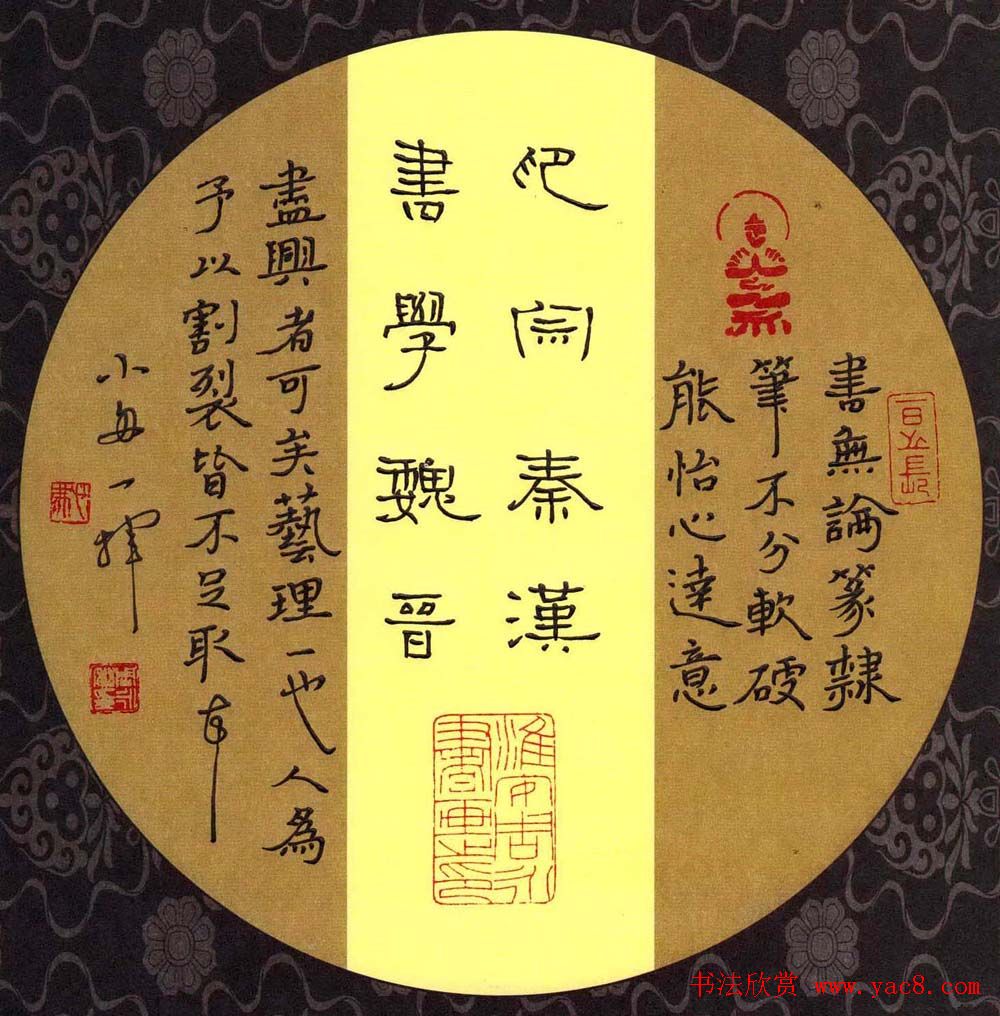 書無論篆隸
筆不分軟硬
能怡心達意
印宗秦漢
書學魏晉
盡興者可矣藝理一也人為
予以割裂皆不足取
一揮
书法欣赏 www.yac8.com